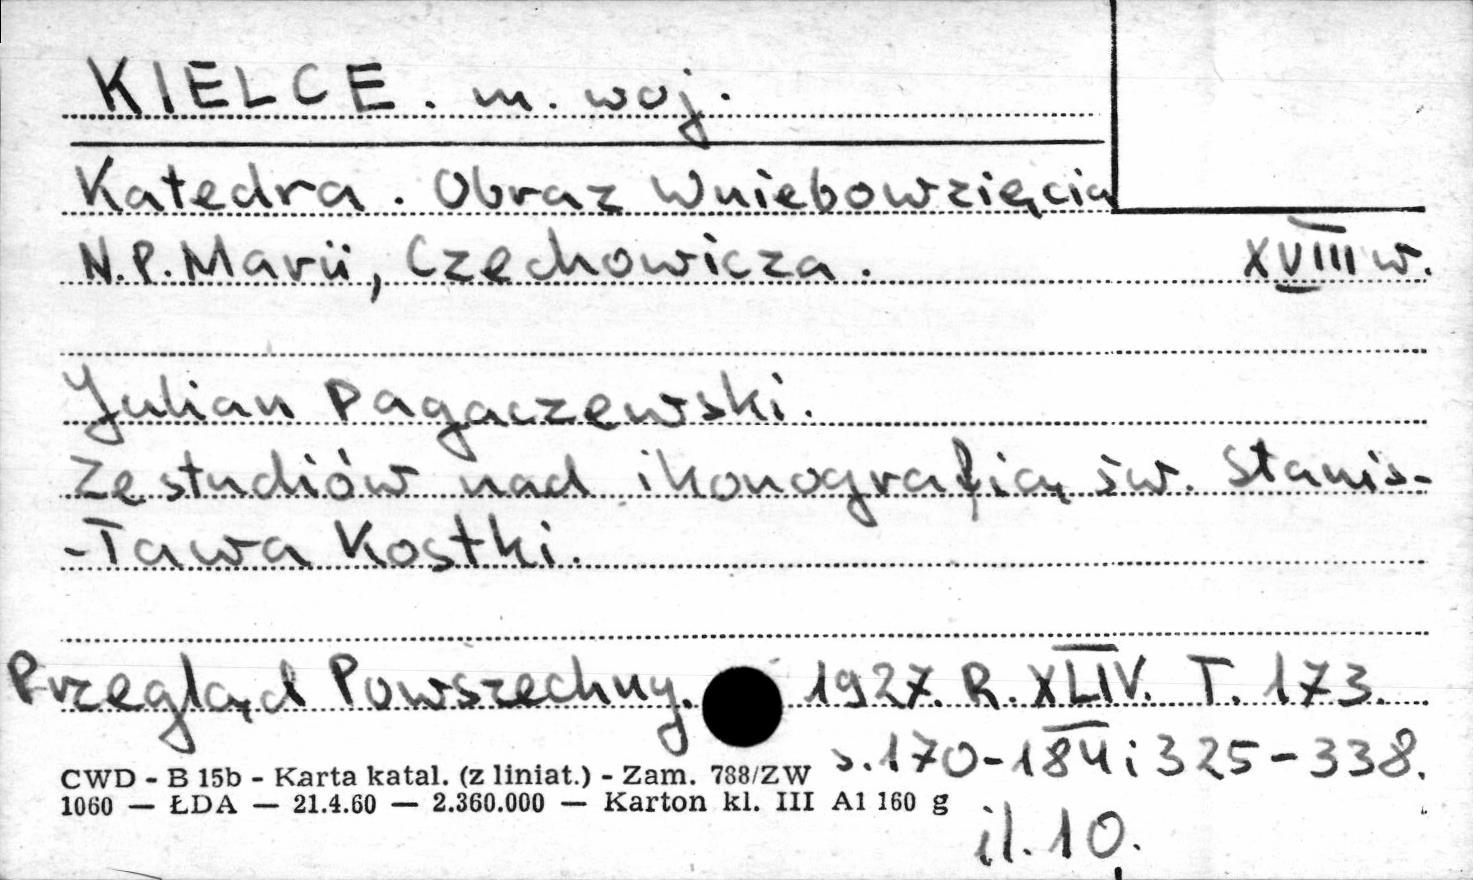 KIELCE. m. woj.
Katedra. Obraz Wniebowzięcia
N.P. Marii, Czechowicza. XVIII w.
Julian Pagaczewski.
Ze studiów nad ikonografią św. Stanis-
-ława Kostki.
Przegląd Powszechny. 1927. R. XLIV. T. 173.
s. 170-184 i 325-338.
CWD - B 15b - Karta katal. (z liniat.) - Zam. 788/ZW
1060 — ŁDA — 21.4.60 — 2.360.000 — Karton kl. III A1 160 g
il. 10.